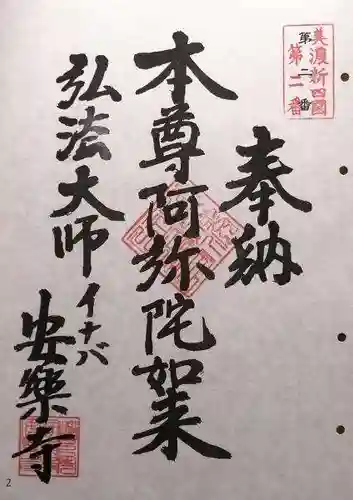 美濃新四国
第二番
第二番
奉納
本尊阿弥陀如来
弘法大師
イナバ
安楽寺
2